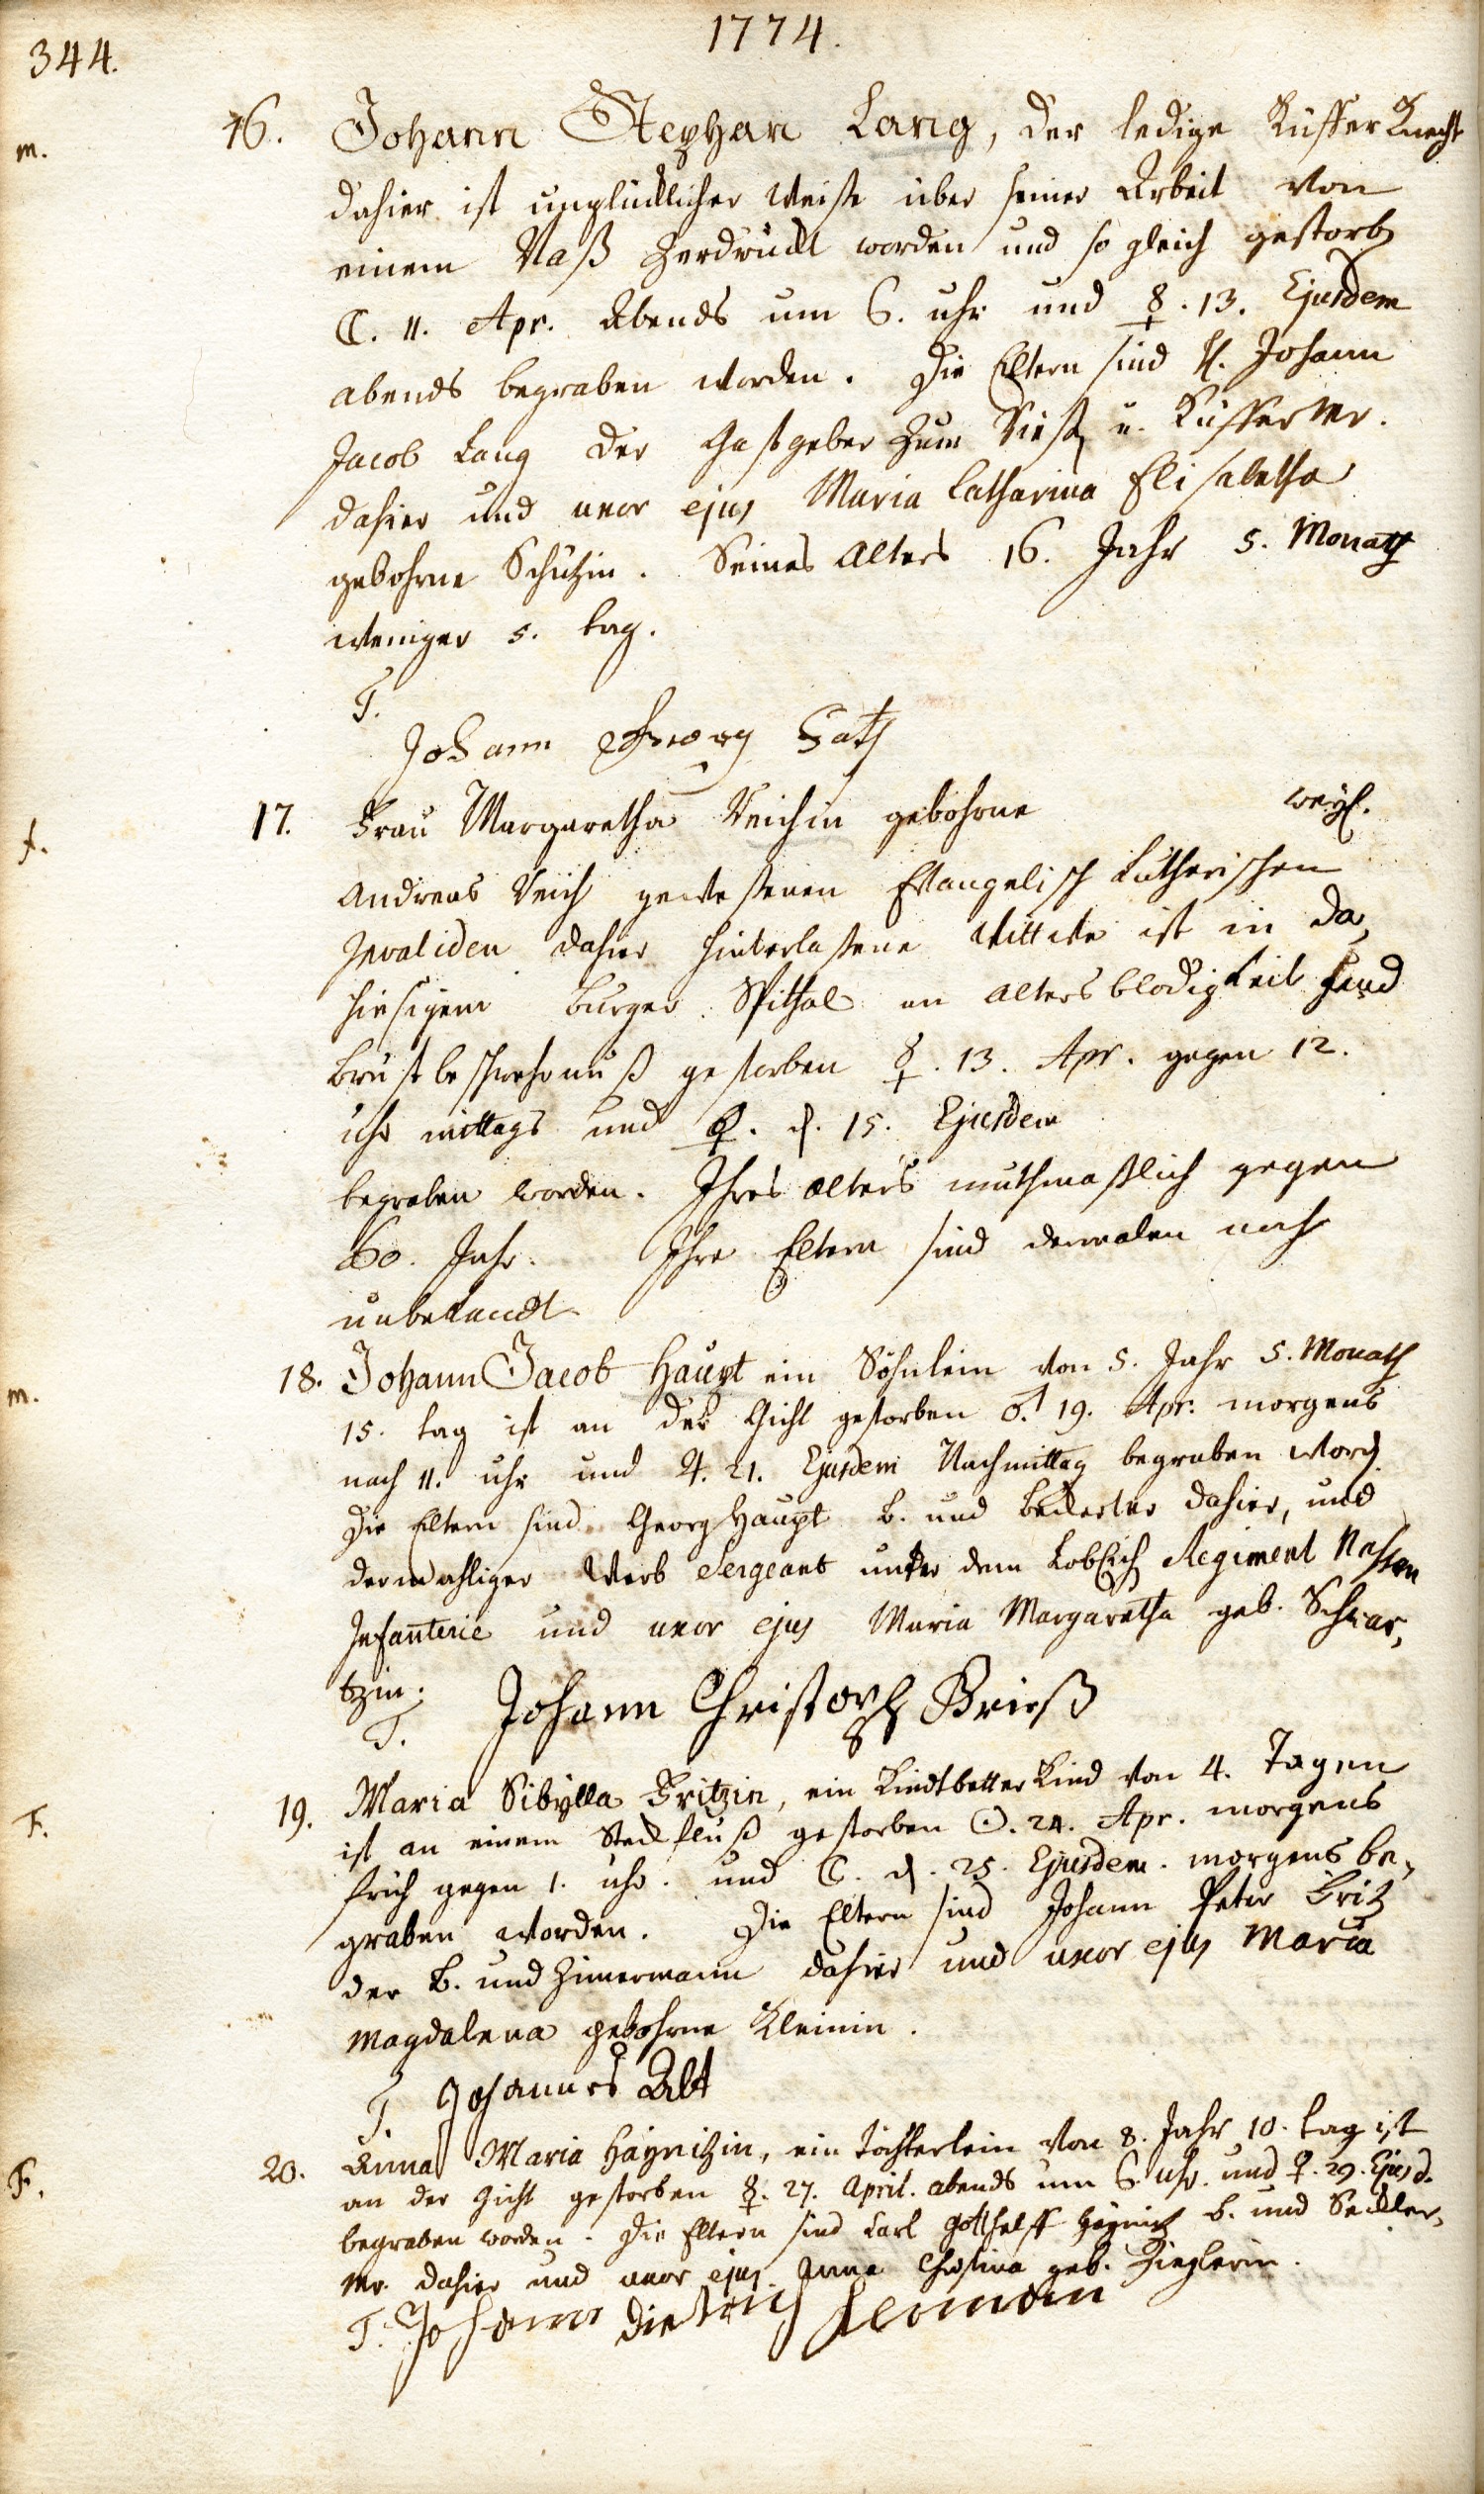 1774.
344.
m.
16. Johann Stephan Lang, der ledige Küffer Knecht
dahier ist unglücklicher Weise über seiner Arbeit von
einem Vaß zerdrückt worden und so gleich gestorb
☾. 11. Apr. Abends um 6. uhr und ☿. 13. Ejusdem
abends begraben worden. Die Eltern sind H. Johann
Jacob Lang der Gastgeber zum u. Küffer Mr.
dahier und uxor ejus Maria Catharina Elisabetha
gebohrne Schützin. Seines Alters 16. Jahr 5. Monath
weniger 5. tag.
T.
Johann Georg
f.
17. Frau Margaretha Veichin gebohrne weyl.
Andreas Veich gewesenen Evangelisch Lutherischen
Invaliden dahier hinterlassene Wittwe ist in da,
hiesigem burger Spithal an Altersblödigkeit und
Brustbeschwehrnuß gestorben ☿. 13. Apr. gegen 12.
uhr mittags und ♀. d. 15. Ejusdem
begraben worden. Ihres Alters muthmaßlich gegen
60. Jahr. Ihre Eltern sind dermalen noch
unbekandt
m.
18. Johann Jacob Haupt ein Söhnlein von 5. Jahr 5. Monath
15. tag ist an der Gicht gestorben ♂. 19. Apr. morgens
nach 11. uhr und ♃. 21. Ejusdem Nachmittag begraben word.
Die Eltern sind Georg Haupt b. und dahier, und
dermahliger Werb Sergeant unter dem Loblich Regiment Nassau
Infanterie und uxor ejus Maria Margaretha geb. Schwar,
tzin.
T. Johann Christoph Brieß
F.
19. Maria Sibylla Fritzin, ein Kindtbetter Kind von 4. Tagen
ist an einem Steckfluß gestorben ☉. 24. Apr. morgens
früh gegen 1. uhr. und ☾. d. 25. Ejusdem. morgens be,
graben worden. Die Eltern sind Johann Peter Fritz
der b. und Zimermann dahier und uxor ejus Maria
Magdalena gebohrne Kleinin.
T. Johannes Alt
F.
20. Anna Maria Häynitzin, ein Töchterlein von 8. Jahr 10. tag ist
an der Gicht gestorben ☿. 27. April. abends um 6. uhr. und ♀. 29. Ejusd.
begraben worden. Die Eltern sind Carl Gotthelff Häynitz b. und Seckler,
Mr. dahier und uxor ejus Anna Christina geb. Zieglerin.
T. Johann Dietrich